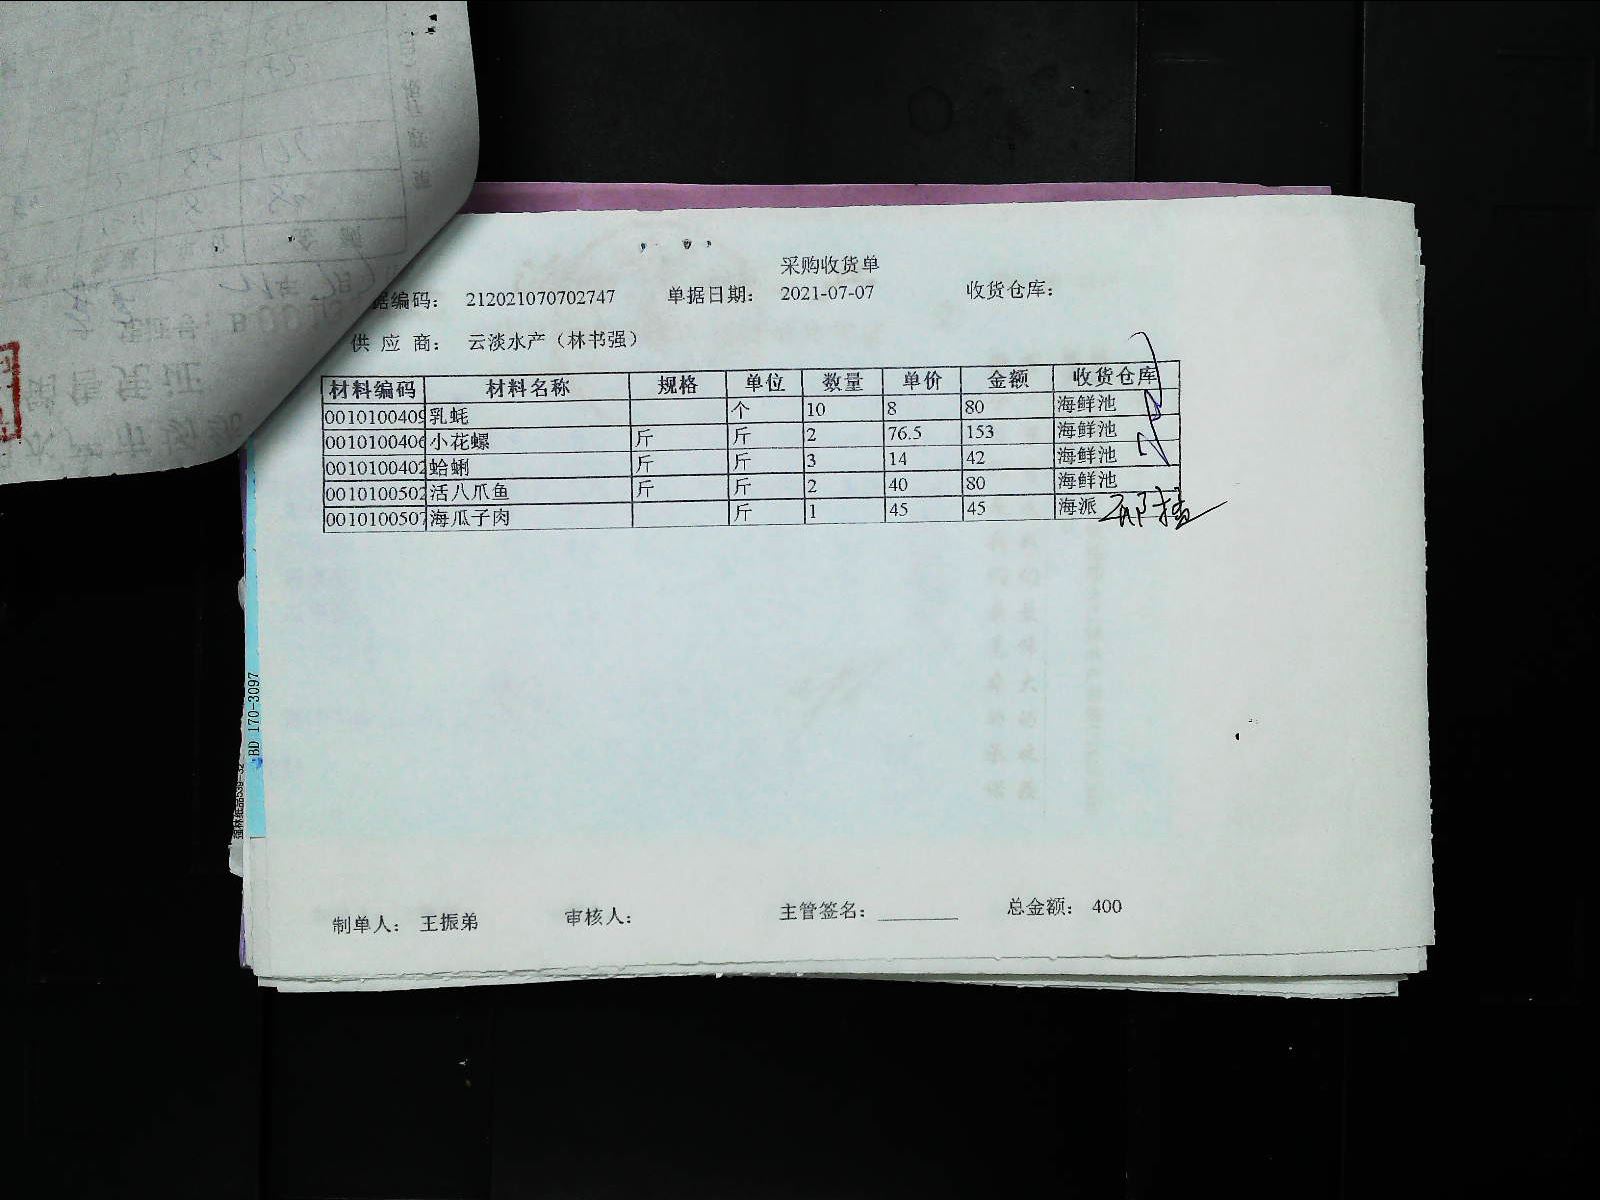 采购收货单
据编码： 212021070702747 单据日期： 2021-07-07 收货仓库：
供 应 商： 云淡水产（林书强）
材料编码 材料名称 规格 单位 数量 单价 金额 收货仓库
0010100409 乳蚝 个 10 8 80 海鲜池
0010100406 小花螺 斤 斤 2 76.5 153 海鲜池
0010100402 蛤蜊 斤 斤 3 14 42 海鲜池
0010100502 活八爪鱼 斤 斤 2 40 80 海鲜池
0010100507 海瓜子肉 斤 1 45 45 海派
BD 170-3097
制单人： 王振弟 审核人： 主管签名： 总金额： 400